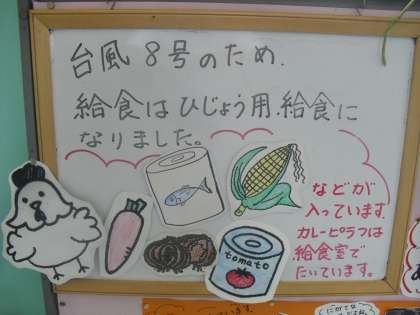 台風８号のため.
給食はひじょう用.給食に
なりました。
などが
入っています.
カレーピラフは
給食室で
たいています。
tomato